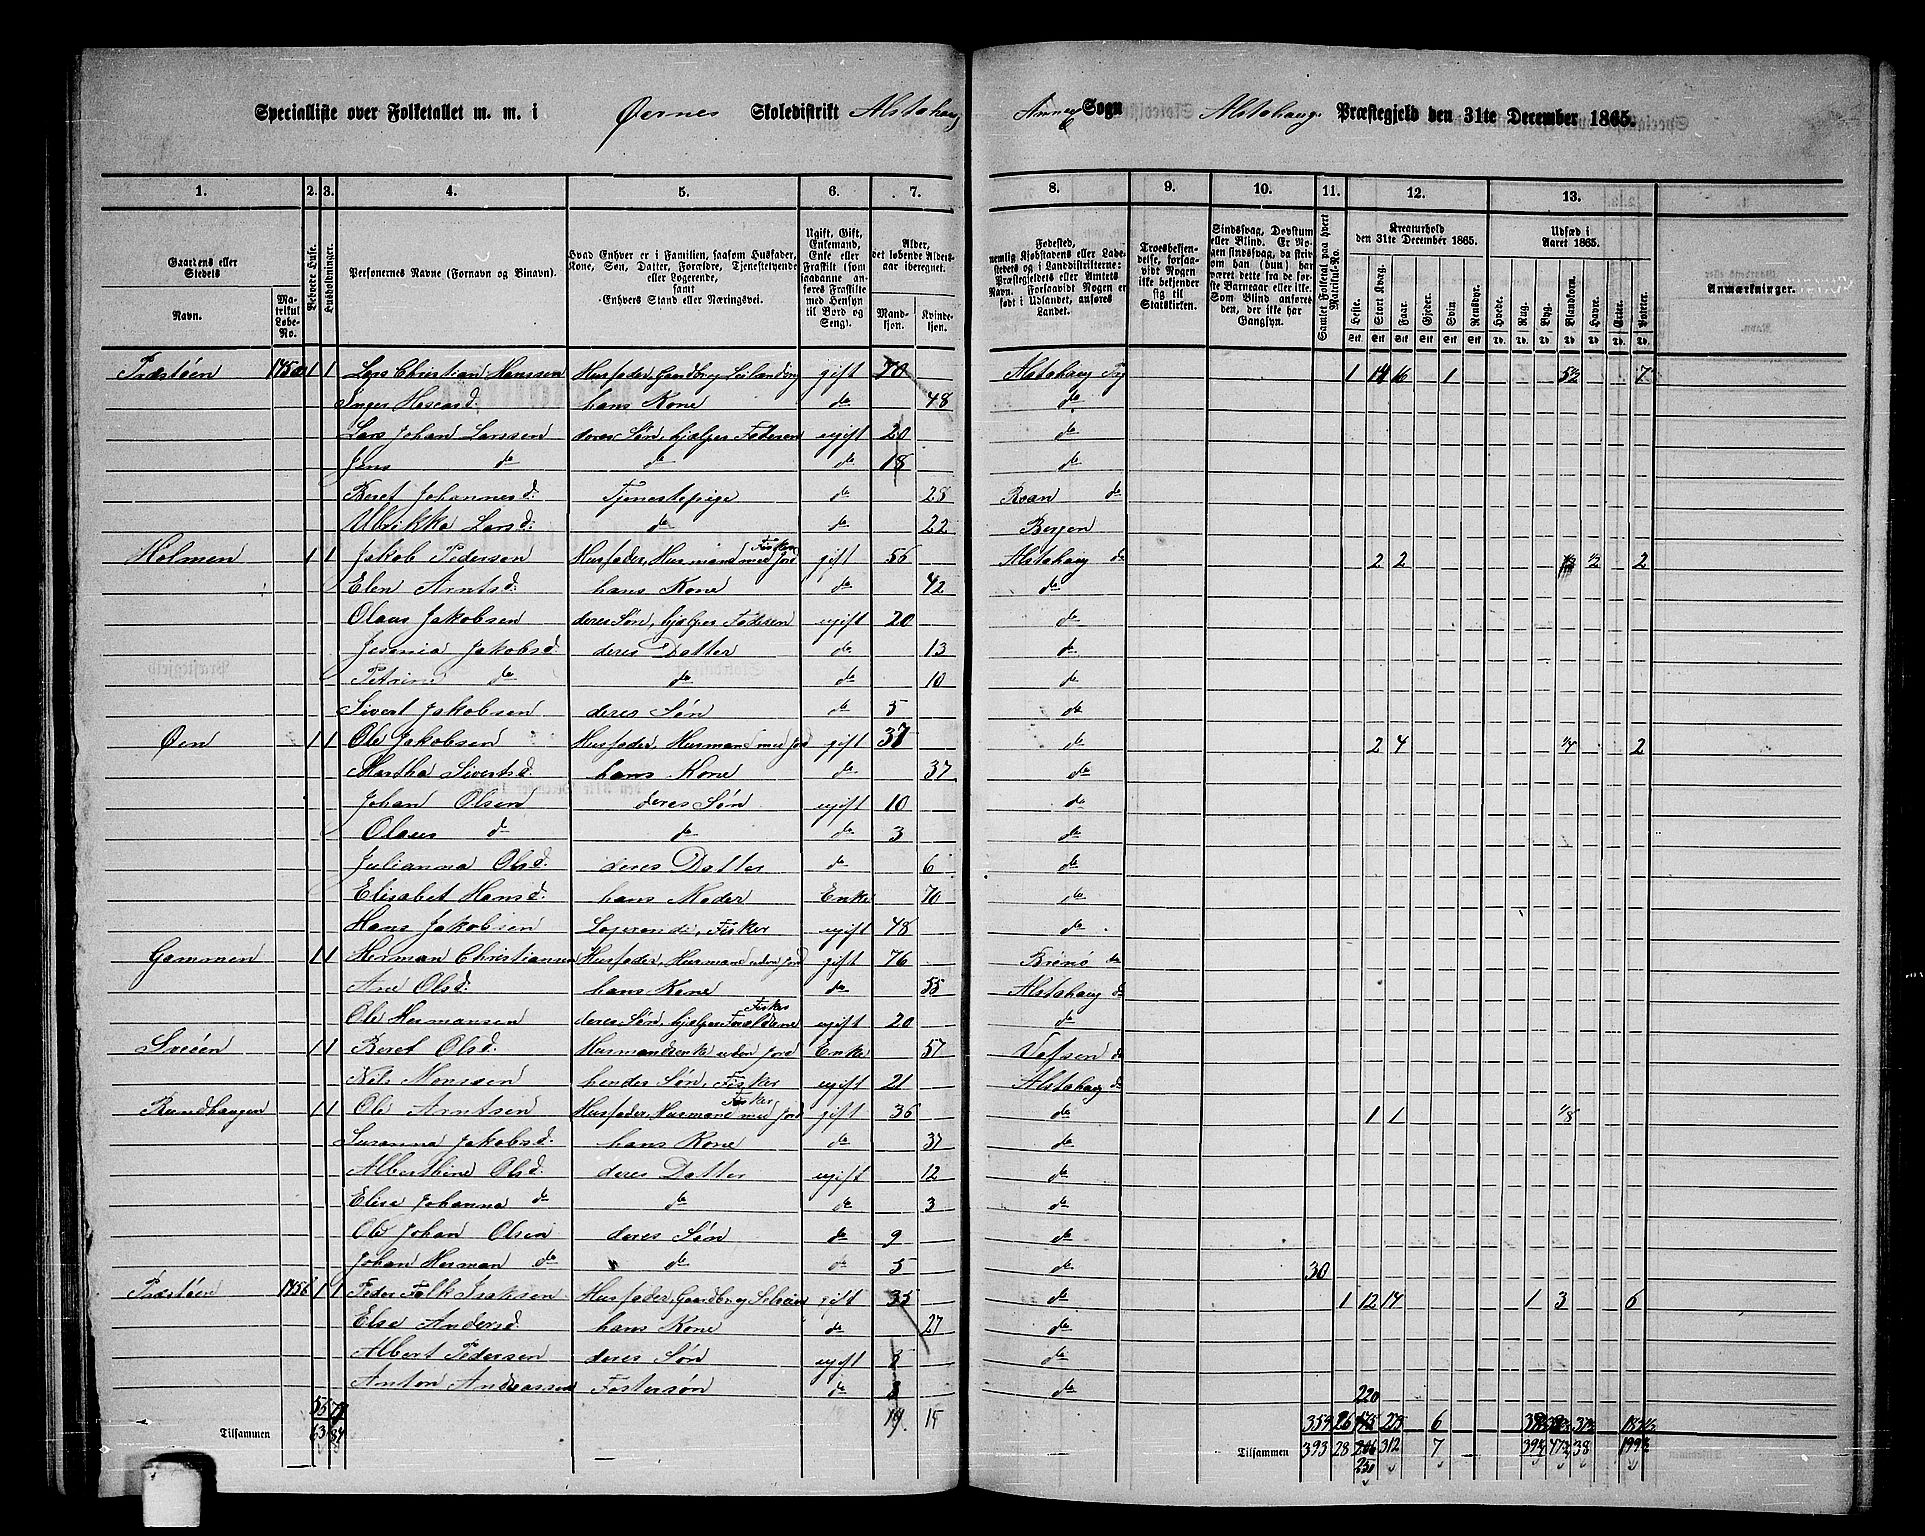 Specialliste over Folketallet m. m. i Øernes Skoledistrikt Alstahaug Annex Sogn Alstahaug Præstegjeld den 31te December 1865.
1. 2. 3. 4. 5. 6. 7. 8. 9. 10. 11. 12. 13.
Gaardens eller Stedets Navn. Matrikul Løbe-No. Beboet Huse. Husholdninger. Personernes Navne (Fornavn og Binavn). Hvad Enhver er i Familien, saasom Husfader, Kone, Søn, Datter, Forældre, Tjenestetyende eller Logerende, samt Enhvers Stand eller Næringsvei. Ugift, Gift, Enkemand, Enke eller Fraskilt (som saadanne anføres Fraskilte med Hensyn til Bord og Seng). Alder, det løbende Aldersaar iberegnet. Mandkjøn. Kvindekjøn.
Fødested, nemlig Kjøbstadens eller Ladestedets og i Landdistrikterne: Præstegjeldets eller Amtets Navn. Forsaavidt Nogen er født i Udlandet, anføres Landet. Troesbekjendelse, forsaavidt Nogen ikke bekjender sig til Statskirken. Sindssvag, Døvstum eller Blind. Er Nogen sindssvag, da anmærkes dette fra de forste Barneaar eller ikke. Som Blind anføres den, der ikke har Gangsyn. Samlet Folketal paa hvert Matrikul-No.
Kreaturhold den 31te December 1865. Heste. Stort Kvæg. Faar. Gjeder. Svin. Rensdyr. Udsæd i Aaret 1865. Hvede. Rug. Byg. Blandkorn. Havre. Erter. Poteter. Anmærkninger.
Præstøen 145a 1 1 Lars Christian Hanssen Husfader, Gaardbrug Leilænding gift 70 Alstahaug Prg 1 14 16 1 5½ 7
hans Kone do 48 do
Lars Johan Larssen deres Søn, hjælper Faderen ugift 20 do
Jens do do do 18 do
Beret Johannesd. Tjenestepige do 28 do
Ulrikka Larsd: do do 22 Bergen
Holmen 1 1 Jakob Pedersen Husfader, Husmand med Jord Fisker gift 56 Alstahaug do 2 2 ½ 2
Elen Arntsd. hans Kone do 42 do
Olaus Jakobsen deres Søn, hjælper Faderen ugift 20 do
Jakobsd. deres Datter do 13 do
Petrine do do do 10 do
Sivert Jakobsen deres Søn do 5 do
Øen 1 1 Ole Jakobsen Husfader, Husmand med Jord gift 37 do 2 4 ¼ 2
Martha Sivertsd. hans Kone do 37 do
Johan Olsen deres Søn ugift 10 do
Olaus do do do 3 do
Julianna Olsd. deres Datter do 6 do
Elisabet Hansd. hans Moder Enke 70 do
Hans Jakobsen Logerende, Fisker ugift 48 do
Gammen 1 1 Herman Christiansen Husfader, Husmand uden Jord gift 76 Brönö do
Ane Olsd. hans Kone do 55 Alstahaug do
Ole Hermansen deres Søn, hjælper Forældrene Fisker ugift 20 do
Sveen 1 1 Beret Olsd. Husmandsenke uden Jord Enke 57 Vefsen do
Nils Monssen hendes Søn, Fisker ugift 21 Alstahaug do
Rundhaugen 1 1 Ole Arntsen Husfader, Husmand med Jord Fisker gift 36 do 1 1 ⅛
Susanna Jakobsd. hans Kone do 37 do
Albertine Olsd. deres Datter ugift 12 do
Elise Johanna do do do 3 do
Ole Johan Olsen deres Søn do 9 do
Johan Herman do do do 5 do 30
Præstøen 145b 1 1 Peder Falk Isaksen Husfader, Gaardbrug Selveier gift 35 do 1 12 14 1 3 6
Else Andersd. hans Kone do 27 do
Albert Pedersen deres Søn ugift 5 do
Anton Andreassen Fostersøn do 8 do
220
55 77 19 15 353 26 278 6
Tilsammen 63 84 Tilsammen 393 28 206 312 7 38
250